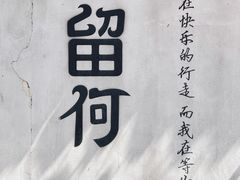 留何
在快乐的行走而我在等